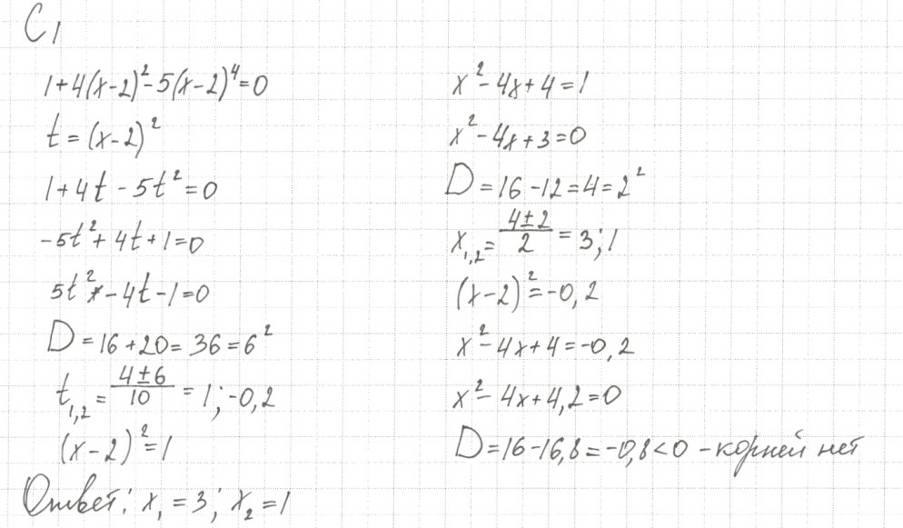 C1
1+4(x-2)²-5(x-2)⁴=0
t=(x-2)²
1+4t-5t²=0
-5t²+4t+1=0
5t²-4t-1=0
D=16+20=36=6²
t₁,₂=(4±6)/10=1;-0,2
(x-2)²=1
x²-4x+4=1
x²-4x+3=0
D=16-12=4=2²
x₁,₂=(4±2)/2=3;1
(x-2)²=-0,2
x²-4x+4=-0,2
x²-4x+4,2=0
D=16-16,8=-0,8<0 -корней нет
Ответ: x₁=3; x₂=1